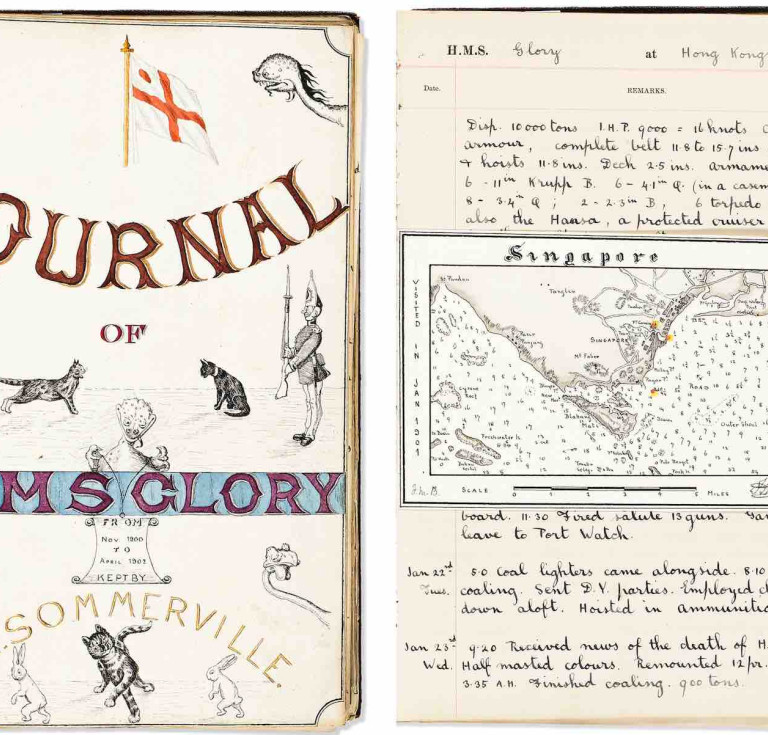 OURNAL
OF
MS GLORY
FROM
NOV 1900
TO
APRIL 1902
KEPT BY
SOMMERVILLE.
H.M.S. Glory at Hong Kong
Date. REMARKS.
Disp. 10000 tons I.H.P. 9000 = 16 knots
armour, complete belt 11.8 to 15.7 ins
& hoists 11.8 ins. Deck 2.5 ins. armame
6 - 11 in Krupp B. 6 - 4.1 in Q. (in a casem
8 - 3.4 in Q ; 2 - 2.3 in B, 6 torpedo
also the Hansa, a protected cruiser
Singapore
VISITED IN JAN 1901
Tanglin
SINGAPORE
Mt Faber
Blakang
Mati
ROAD
Outer Shoal
SCALE 0 1 2 3 4 5 MILES
board. 11.30 Fired salute 13 guns.
leave to Port Watch.
Jan 22nd 5.0 Coal lighters came alongside. 8.10
Tues. coaling. Sent D.Y. parties. Employed
down aloft. Hoisted in ammunitio
Jan 23rd 9.20 Received news of the death of H.
Wed. Half masted colours. Remounted 12 pr.
3.35 A.H. Finished coaling. 900 tons.